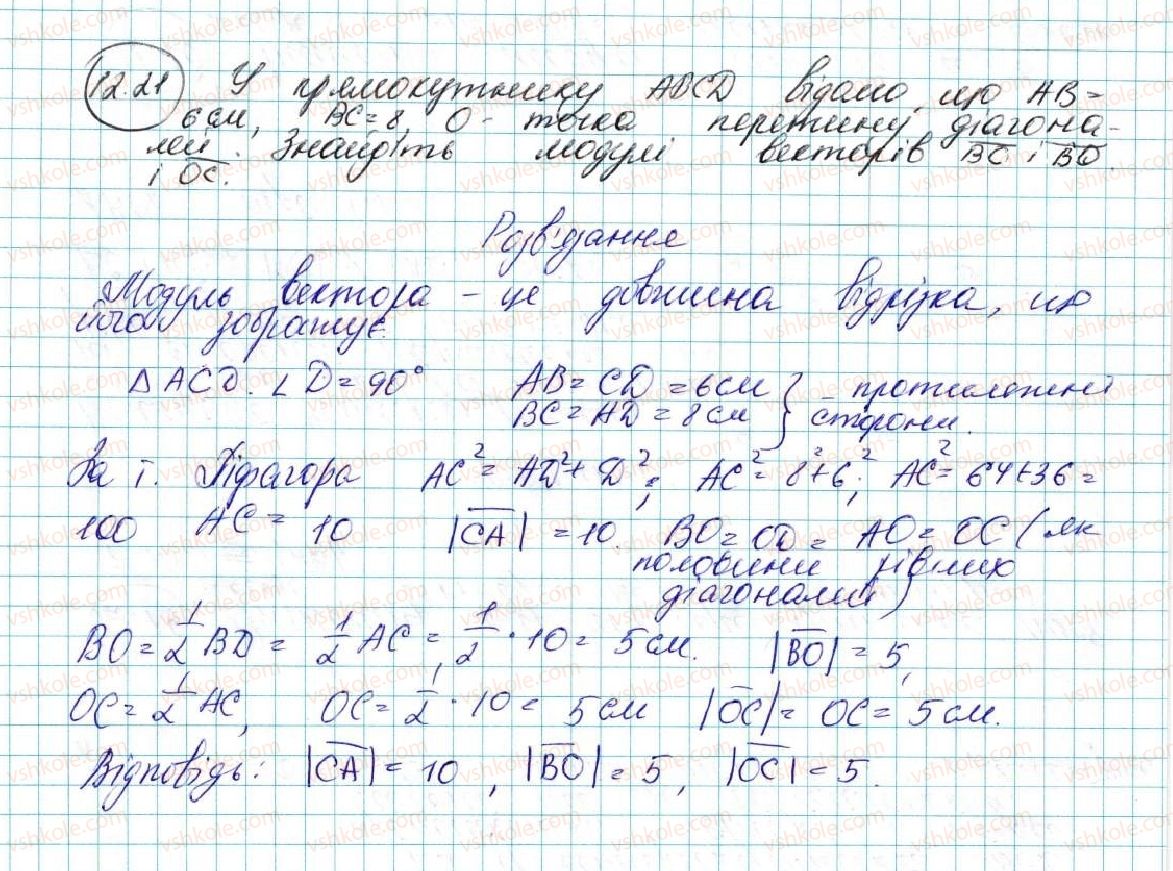 12.21 У прямокутнику ABCD відомо, що AB =
6 см, BC = 8, O - точка перетину діагона-
лей. Знайдіть модулі векторів BC і BO
і OC.
Розв'язання
Модуль вектора - це довжина відрізка, що
його зображує.
Δ ACD. ∠ D = 90° AB = CD = 6 см } - протилежні
BC = AD = 8 см } сторони.
За т. Піфагора AC² = AD² + D²; AC² = 8² + 6²; AC² = 64 + 36 =
100 AC = 10 |CA| = 10. BO = OD = AO = OC (як
половини рівних
діагоналей)
BO = 1/2 BD = 1/2 AC = 1/2 · 10 = 5 см. |BO| = 5,
OC = 1/2 AC, OC = 1/2 · 10 = 5 см |OC| = OC = 5 см.
Відповідь: |CA| = 10, |BO| = 5, |OC| = 5.
vshkole.com